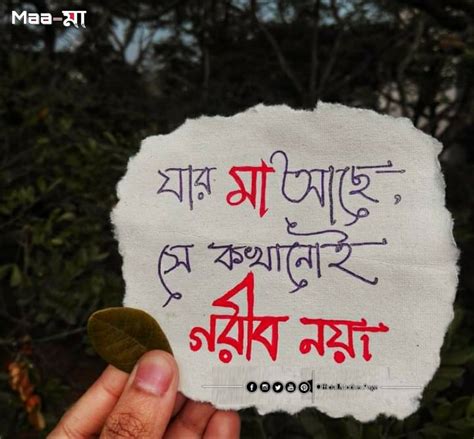 Maa-মা
যার মা আছে,
সে কখানোই
গরীব নয়।